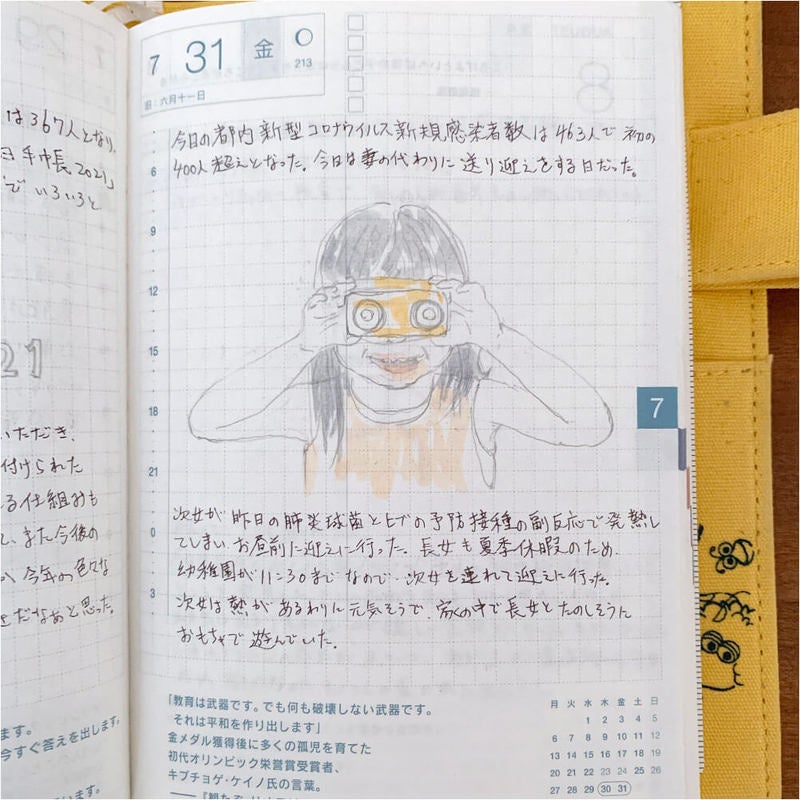 は367人となり、
手帳2021」
でいろいろと
21
いただき、
付けられた
る仕組みも
、また今後の
今年の色々な
だなあと思った。
ます。
今すぐ答えを出します。
7 31 金
213
旧：六月十一日
今日の都内新型コロナウイルス新規感染者数は463人で初の
400人超えとなった。今日は妻の代わりに送り迎えをする日だった。
6
9
12
15
18
21
0
3
7
次女が昨日の肺炎球菌とヒブの予防接種の副反応で発熱し
てしまい、お昼前に迎えに行った。長女も夏季休暇のため、
幼稚園が11:30までなので、次女を連れて迎えに行った。
次女は熱があるわりに元気そうで、家の中で長女とたのしそうに
おもちゃで遊んでいた。
「教育は武器です。でも何も破壊しない武器です。
それは平和を作り出します」
金メダル獲得後に多くの孤児を育てた
初代オリンピック栄誉賞受賞者、
キプチョゲ・ケイノ氏の言葉。
月 火 水 木 金 土 日
1 2 3 4 5
6 7 8 9 10 11 12
13 14 15 16 17 18 19
20 21 22 23 24 25 26
27 28 29 30 31